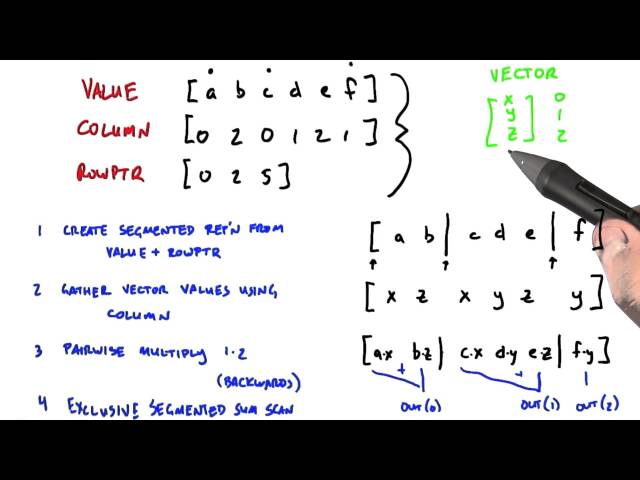 VALUE [a b c d e f]
COLUMN [0 2 0 1 2 1]
ROWPTR [0 2 5]
VECTOR
[x] 0
[y] 1
[z] 2
1 CREATE SEGMENTED REP'N FROM
VALUE + ROWPTR
2 GATHER VECTOR VALUES USING
COLUMN
3 PAIRWISE MULTIPLY 1·2
(BACKWARDS)
4 EXCLUSIVE SEGMENTED SUM SCAN
[a b | c d e | f]
[x z x y z y]
[a·x b·z | c·x d·y e·z | f·y]
+ +
OUT(0) OUT(1) OUT(2)